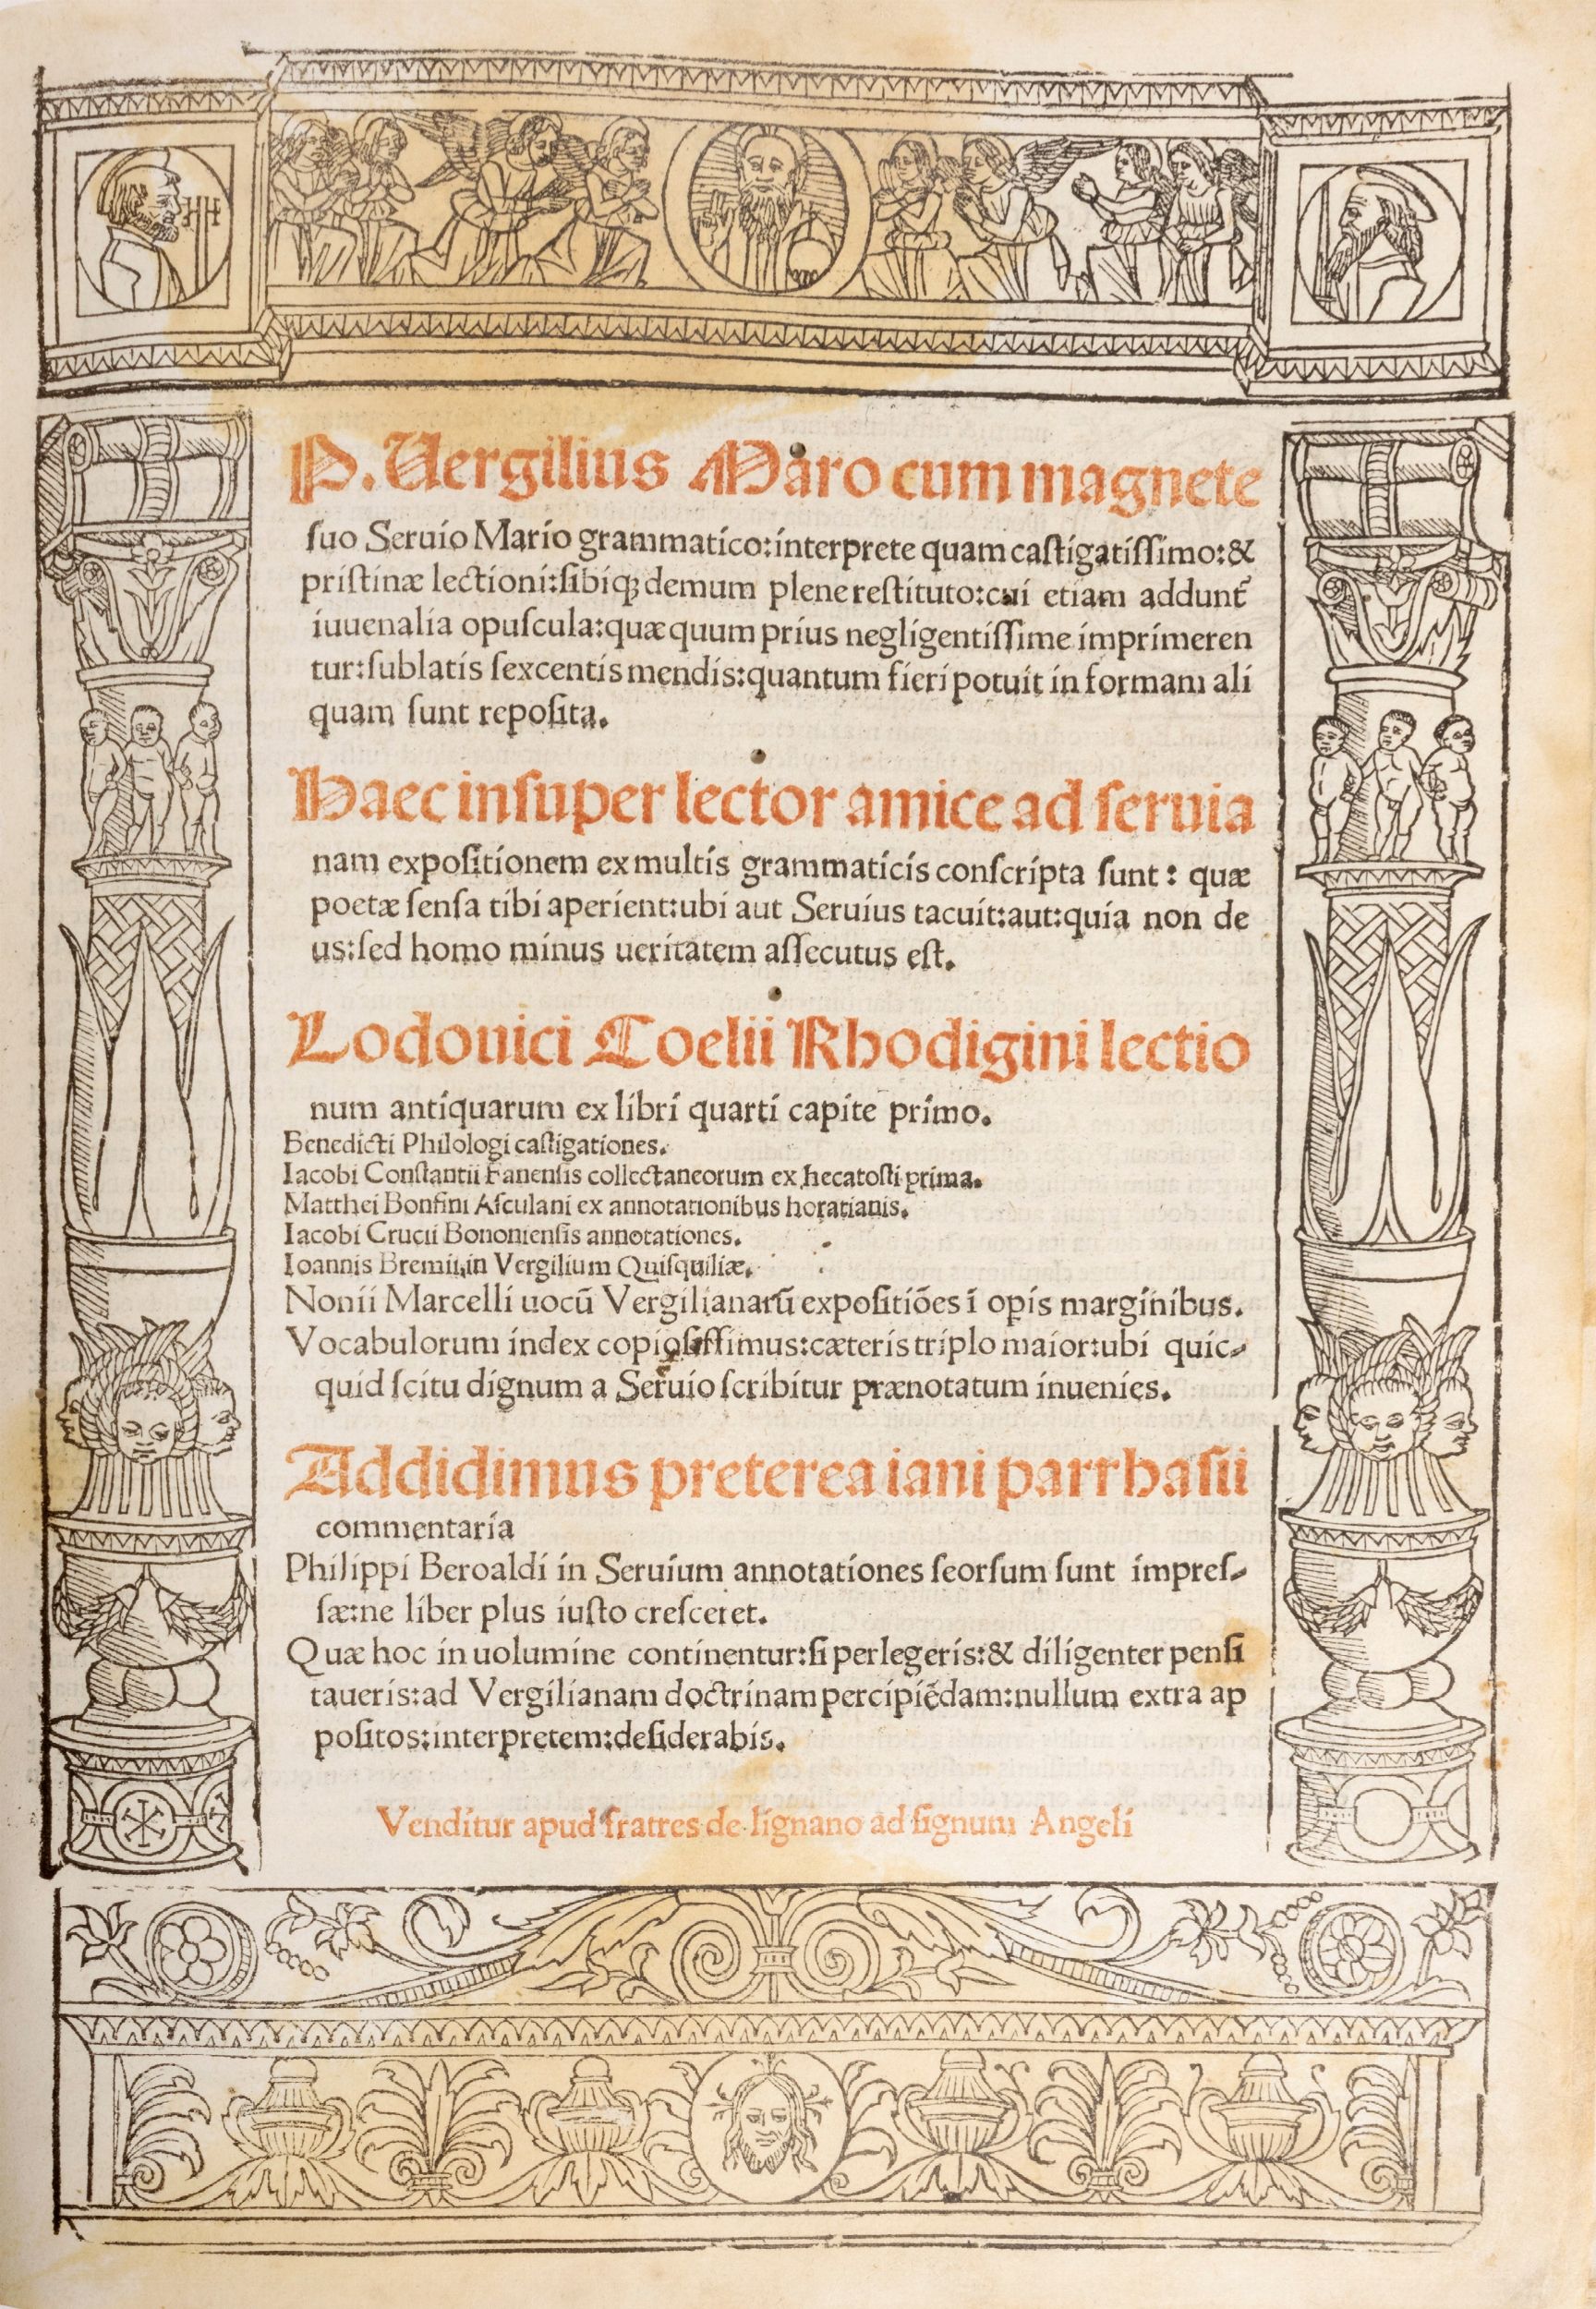 P. Vergilius Maro cum magnete
ſuo Seruio Mario grammatico:interprete quam caſtigatiſſimo:&
priſtinæ lectioni:ſibiqꝫ demum plene reſtituto:cui etiam addunt᷑
iuuenalia opuſcula:quæ quum prius negligentiſſime imprimeren
tur:ſublatis ſexcentis mendis:quantum fieri potuit in formam ali
quam ſunt repoſita.
Haec inſuper lector amice ad ſeruia
nam expoſitionem ex multis grammaticis conſcripta ſunt: quæ
poetæ ſenſa tibi aperient:ubi aut Seruius tacuit:aut:quia non de
us:ſed homo minus ueritatem aſſecutus eſt.
Lodouici Coelii Rhodigini lectio
num antiquarum ex libri quarti capite primo.
Benedicti Philologi caſtigationes.
Iacobi Conſtantii Fanenſis collectaneorum ex hecatoſti prima.
Matthei Bonfini Aſculani ex annotationibus horatianis.
Iacobi Crucii Bononienſis annotationes.
Ioannis Bremii,in Vergilium Quiſquiliæ.
Nonii Marcelli uocū Vergilianarū expoſitiōes ī opis marginibus.
Vocabulorum index copioſiſſimus:cæteris triplo maior:ubi quic⸗
quid ſcitu dignum a Seruio ſcribitur prænotatum inuenies.
Addidimus preterea iani parrhaſii
commentaria
Philippi Beroaldi in Seruium annotationes ſeorſum ſunt impreſ⸗
ſæ:ne liber plus iuſto creſceret.
Quæ hoc in uolumine continentur:ſi perlegeris:& diligenter penſi
taueris:ad Vergilianam doctrinam percipiēdam:nullum extra ap
poſitos:interpretem:deſiderabis.
Venditur apud fratres de lignano ad ſignum Angeli